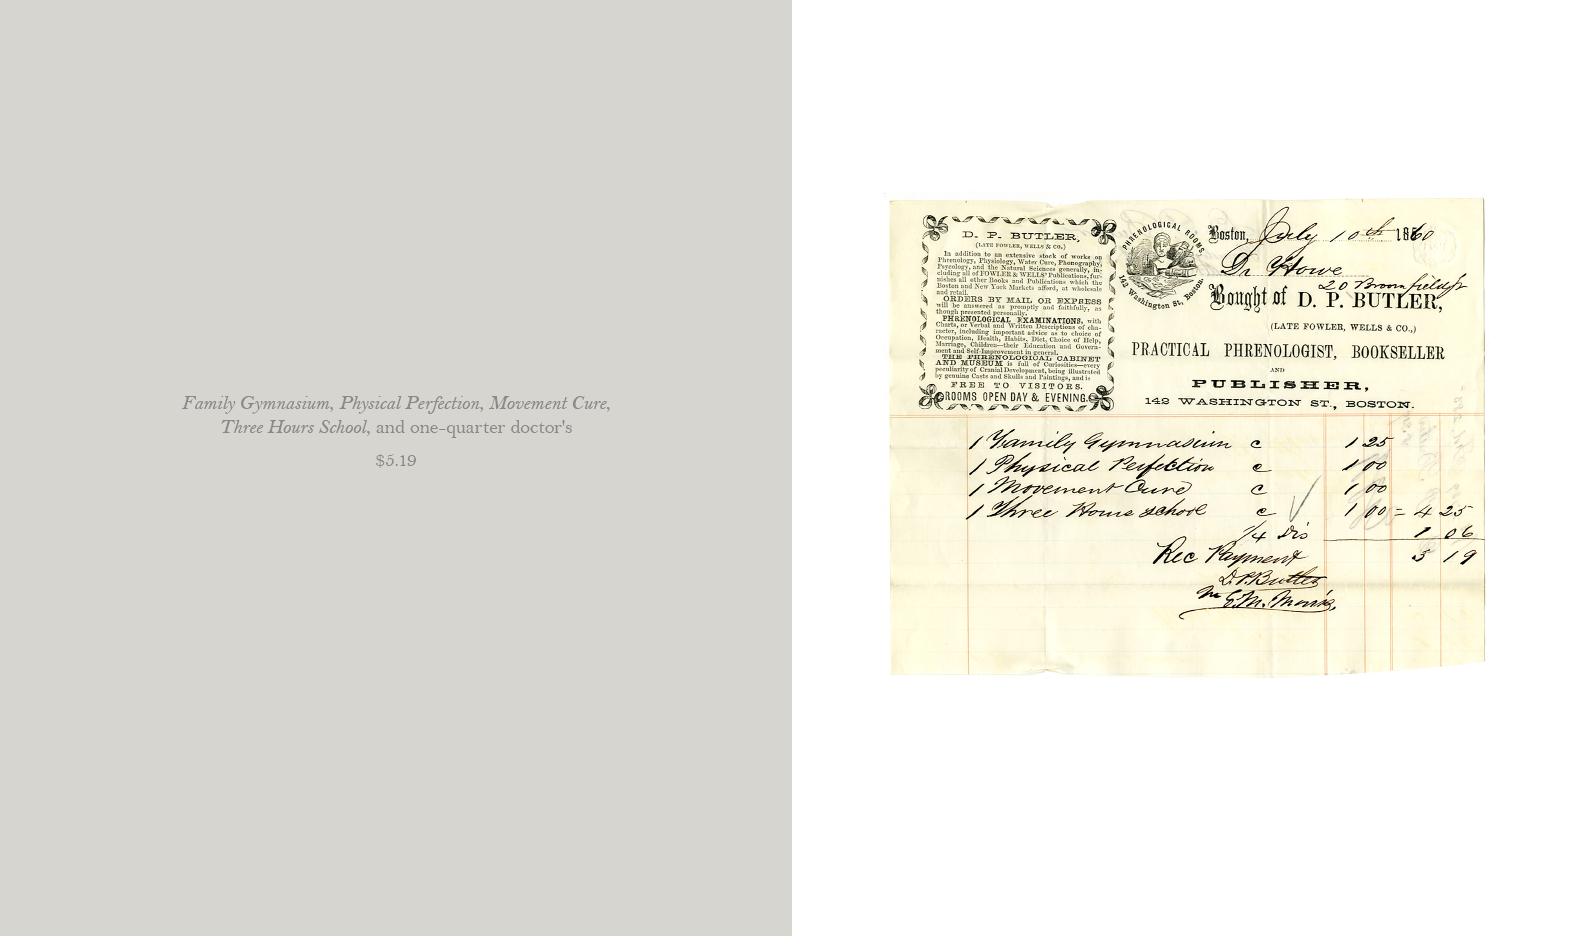 Family Gymnasium, Physical Perfection, Movement Cure,
Three Hours School, and one-quarter doctor's
$5.19
D. P. BUTLER,
(LATE FOWLER, WELLS & CO.)
In addition to an extensive stock of works on
Phrenology, Physiology, Water Cure, Phonography,
Psycology, and the Natural Sciences generally, in-
cluding all of FOWLER & WELLS' Publications, fur-
nishes all other Books and Publications which the
Boston and New York Markets afford, at wholesale
and retail.
ORDERS BY MAIL OR EXPRESS
will be answered as promptly and faithfully, as
though presented personally.
PHRENOLOGICAL EXAMINATIONS, with
Charts, or Verbal and Written Descriptions of cha-
racter, including important advice as to choice of
Occupation, Health, Habits, Diet, Choice of Help,
Marriage, Children—their Education and Govern-
ment and Self-Improvement in general.
THE PHRENOLOGICAL CABINET
AND MUSEUM is full of Curiosities—every
peculiarity of Cranial Development, being illustrated
by genuine Casts and Skulls and Paintings, and is
FREE TO VISITORS.
ROOMS OPEN DAY & EVENING.
PHRENOLOGICAL ROOMS
142 Washington St, Boston.
Boston, July 10th 1860
Dr Howe
20 Bromfield St
Bought of D. P. BUTLER,
(LATE FOWLER, WELLS & CO.,)
PRACTICAL PHRENOLOGIST, BOOKSELLER
AND
PUBLISHER,
142 WASHINGTON ST., BOSTON.
1 Family Gymnasium c 1 25
1 Physical Perfection c 1 00
1 Movement Cure c 1 00
1 Three Hours School c 1 00 = 4 25
1/4 Dis 1 06
Rec Payment 5 19
D. P. Butler
E. M. Morris